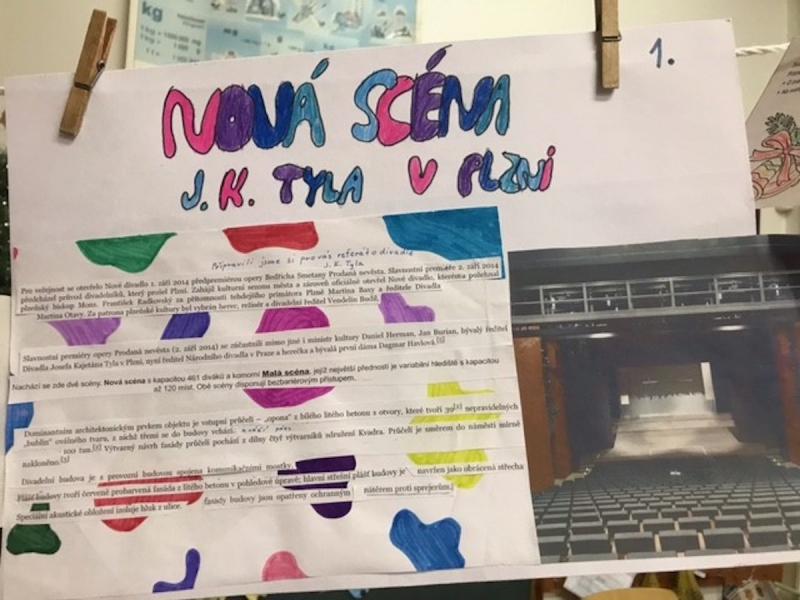 kg
1.
NOVÁ SCÉNA
J. K. TYLA V PLZNI
Připravili jsme si pro vás referát o divadle
J. K. Tyla
Pro veřejnost se otevřelo Nové divadlo 1. září 2014 předpremiérou opery Bedřicha Smetany Prodaná nevěsta. Slavnostní premiéře 2. září 2014
předcházel průvod divadelníků, který prošel Plzní. Zahájil kulturní sezonu města a zároveň oficiálně otevřel Nové divadlo, kterému požehnal
plzeňský biskup Mons. František Radkovský za přítomnosti tehdejšího primátora Plzně Martina Baxy a ředitele Divadla
Martina Otavy. Za patrona plzeňské kultury byl vybrán herec, režisér a divadelní ředitel Vendelín Budil.
Slavnostní premiéry opery Prodaná nevěsta (2. září 2014) se zúčastnili mimo jiné i ministr kultury Daniel Herman, Jan Burian, bývalý ředitel
Divadla Josefa Kajetána Tyla v Plzni, nyní ředitel Národního divadla v Praze a herečka a bývalá první dáma Dagmar Havlová.
Nachází se zde dvě scény. Nová scéna s kapacitou 461 diváků a komorní Malá scéna, jejíž největší předností je variabilní hlediště s kapacitou
až 120 míst. Obě scény disponují bezbariérovým přístupem.
Dominantním architektonickým prvkem objektu je vstupní průčelí – „opona“ z bílého litého betonu s otvory, které tvoří 39 nepravidelných
„bublin“ oválného tvaru, z nichž třemi se do budovy vchází.
100 tun. Výtvarný návrh fasády průčelí pochází z dílny čtyř výtvarníků sdružení Kvadra. Průčelí je směrem do náměstí mírně
nakloněno.
Divadelní budova je s provozní budovou spojena komunikačními mostky.
Plášť budovy tvoří červeně probarvená fasáda z litého betonu v pohledové úpravě; hlavní střešní plášť budovy je navržen jako obrácená střecha
Speciální akustické obložení izoluje hluk z ulice. fasády budovy jsou opatřeny ochranným nátěrem proti sprejerům.